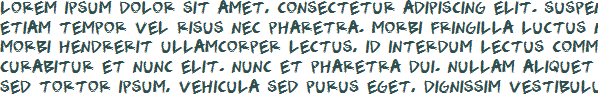 LOREM IPSUM DOLOR SIT AMET, CONSECTETUR ADIPISCING ELIT. SUSPE
ETIAM TEMPOR VEL RISUS NEC PHARETRA. MORBI FRINGILLA LUCTUS
MORBI HENDRERIT ULLAMCORPER LECTUS, ID INTERDUM LECTUS COMM
CURABITUR ET NUNC ELIT. NUNC ET PHARETRA DUI. NULLAM ALIQUET
SED TORTOR IPSUM, VEHICULA SED PURUS EGET, DIGNISSIM VESTIBULU